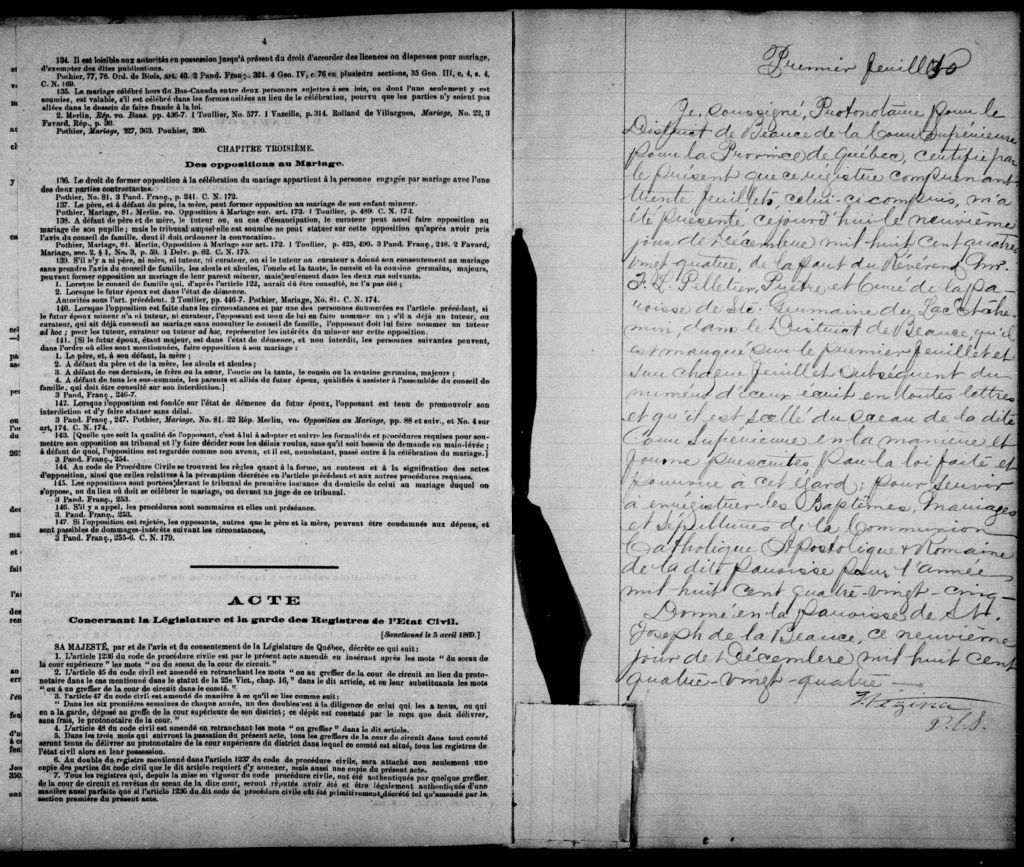 4
134. Il est loisible aux autorités en possession jusqu'à présent du droit d'accorder des licences ou dispenses pour mariage,
d'exempter des dites publications.
Pothier, 77, 78. Ord. de Blois, art. 40. 2 Pand. Franç., 324. 4 Geo. IV, c. 76 en plusieurs sections, 35 Geo. III, c, 4, s. 4,
C. N. 169.
135. Le mariage célébré hors du Bas-Canada entre deux personnes sujettes à ses lois, ou dont l'une seulement y est
soumise, est valable, s'il est célébré dans les formes usitées au lieu de la célébration, pourvu que les parties n'y soient pas
allées dans le dessein de faire fraude à la loi.
2. Merlin, Rép. vo. Bans. pp. 436-7. 1 Toullier, No. 577. 1 Vazeille, p. 314. Rolland de Villargues, Mariage, No. 22, 3
Favard, Rép., p. 30.
Pothier, Mariage, 327, 363. Pouhier, 390.
CHAPITRE TROISIÈME.
Des oppositions au Mariage.
136. Le droit de former opposition à la célébration du mariage appartient à la personne engagée par mariage avec l'une
des deux parties contractantes.
Pothier, No. 81. 3 Pand. Franç., p. 241. C. N. 172.
137. Le père, et à défaut du père, la mère, peut former opposition au mariage de son enfant mineur.
Pothier, Mariage, 81. Merlin. vo. Opposition à Mariage sur. art. 173. 1 Toullier, p. 489. C. N. 173.
138. A défaut de père et de mère, le tuteur ou, au cas d'émancipation, le curateur peut aussi faire opposition au
mariage de son pupille; mais le tribunal auquel elle est soumise ne peut statuer sur cette opposition qu'après avoir pris
l'avis du conseil de famille, dont il doit ordonner la convocation.
Pothier, Mariage, 81. Merlin, Opposition à Mariage sur art. 172. 1 Toullier, p. 425, 490. 3 Pand. Franç., 248. 2 Favard,
Mariage, sec. 2. § 1, No. 3, p. 59. 1 Delv. p. 62. C. N. 175.
139. S'il n'y a ni père, ni mère, ni tuteur, ni curateur, ou si le tuteur ou curateur a donné son consentement au mariage
sans prendre l'avis du conseil de famille, les aïeuls et aïeules, l'oncle et la tante, le cousin et la cousine germains, majeurs,
peuvent former opposition au mariage de leur parent mineur, mais seulement dans les deux cas suivants.
1. Lorsque le conseil de famille qui, d'après l'article 122, aurait dû être consulté, ne l'a pas été;
2. Lorsque le futur époux est dans l'état de démence.
Autorités sous l'art. précédent. 2 Toullier, pp. 446-7. Pothier, Mariage, No. 81. C. N. 174.
140. Lorsque l'opposition est faite dans les circonstances et par une des personnes énumérées en l'article précédent, si
le futur époux mineur n'a ni tuteur, ni curateur, l'opposant est tenu de lui en faire nommer un; s'il a déjà un tuteur, ou
curateur, qui ait déjà consenti au mariage sans consulter le conseil de famille, l'opposant doit lui faire nommer un tuteur
ad hoc; pour les tuteur, curateur ou tuteur ad hoc, représenter les intérêts du mineur sur cette opposition.
141. [Si le futur époux, étant majeur, est dans l'état de démence, et non interdit, les personnes suivantes peuvent,
dans l'ordre où elles sont mentionnées, faire opposition à son mariage:
1. Le père, et, à son défaut, la mère;
2. A défaut du père et de la mère, les aïeuls et aïeules;
3. A défaut de ces derniers, le frère ou la sœur, l'oncle ou la tante, le cousin ou la cousine germains, majeurs;
4. A défaut de tous les sus-nommés, les parents et alliés du futur époux, qualifiés à assister à l'assemblée du conseil de
famille, qui doit être consulté sur son interdiction.]
3 Pand. Franç., 246-7.
142. Lorsque l'opposition est fondée sur l'état de démence du futur époux, l'opposant est tenu de promouvoir son
interdiction et d'y faire statuer sans délai.
3 Pand. Franç., 247. Pothier, Mariage. No. 81. 22 Rép. Merlin, vo. Opposition au Mariage, pp. 88 et suiv., et No. 4 sur
art, 174. C. N. 174.
143. [Quelle que soit la qualité de l'opposant, c'est à lui à adopter et suivre les formalités et procédures requises pour soumettre
son opposition au tribunal et l'y faire décider sous les délais voulus, sans qu'il soit besoin de demande en main-levée;
à défaut de quoi, l'opposition est regardée comme non avenu, et il est, nonobstant, passé outre à la célébration du mariage.]
3 Pand. Franç., 254.
144. Au code de Procédure Civile se trouvent les règles quant à la forme, au contenu et à la signification des actes
d'opposition, ainsi que celles relatives à la péremption décrétée en l'article précédent et aux autres procédures requises.
145. Les oppositions sont portées devant le tribunal de première instance du domicile de celui au mariage duquel on
s'oppose, ou du lieu où doit se célébrer le mariage, ou devant un juge de ce tribunal.
3 Pand. Franç., 253.
146. S'il y a appel, les procédures sont sommaires et elles ont préséance.
3. Pand. Franç., 253.
147. Si l'opposition est rejetée, les opposants, autres que le père et la mère, peuvent être condamnés aux dépens, et
sont passibles de dommages-intérêts suivant les circonstances,
3 Pand. Franç., 255-6. C. N. 179.
ACTE
Concernant la Législature et la garde des Registres de l'Etat Civil.
[Sanctionné le 5 avril 1869.]
SA MAJESTÉ, par et de l'avis et du consentement de la Législature de Québec, décrète ce qui suit:
1. L'article 1236 du code de procédure civile est par le présent acte amendé en insérant après les mots "du sceau de
la cour supérieure" les mots "ou du sceau de la cour de circuit."
2. L'article 45 du code civil est amendé en retranchant les mots "ou au greffier de la cour de circuit au lieu du protonotaire
dans le cas mentionné dans le statut de la 25e Vict., chap. 16," dans le dit article, et en leur substituants les mots
"ou à un greffier de la cour de circuit dans le comté."
3. l'article 47 du code civil est amendé de manière à ce qu'il se lise comme suit:
"Dans les six premières semaines de chaque année, un des doubles est à la diligence de celui qui les a tenus, ou qui
en a la garde, déposé au greffe de la cour supérieure de son district; ce dépôt est constaté par le reçu que doit délivrer,
sans frais, le protonotaire de la cour."
4. L'article 48 du code civil est amendé en retranchant les mots "ou greffier" dans le dit article.
5. Dans les trois mois qui suivront la passation du présent acte, tous les greffiers de la cour de circuit dans tout comté
seront tenus de délivrer au protonotaire de la cour supérieure du district dans lequel ce comté est situé, tous les registres de
l'état civil alors en leur possession.
6. Au double du registre mentionné dans l'article 1237 du code de procédure civile, sera attaché non seulement une
copie des parties du code civil que le dit article requiert d'y annexer, mais aussi une copie du présent acte.
7. Tous les registres qui, depuis la mise en vigueur du code procédure civile, ont été authentiqués par quelque greffier
de la cour de circuit et revêtus du sceau de la dite cour, seront réputés avoir été et être légalement authentiqués d'une
manière aussi parfaite que si l'article 1236 du dit code de procédure civile eût été primitivement décrété tel qu'amendé par la
section première du présent acte.
Premier feuillet
Je, soussigné, Protonotaire pour le
District de Beauce de la Cour Supérieure
pour la Province de Québec, certifie par
le présent que ce registre comprenant
trente feuillets, celui-ci compris, m'a
été présenté cejourd'hui le neuvième
jour de Décembre mil huit cent quatre
vingt quatre, de la part du Révérend Mr.
F. X. Pelletier, Prêtre et Curé de la pa-
roisse de Ste. Germaine du Lac Etche-
min, dans le District de Beauce, qu'il
est marqué sur le premier feuillet et
sur chaque feuillet subséquent du
numéro d'iceux écrit en toutes lettres
et qu'il est scellé du sceau de la dite
Cour Supérieure en la manière et
forme prescrites par la loi faite et
pourvue à cet égard; pour servir
à enregistrer les Baptêmes, Mariages
et sépultures de la Communion
Catholique Apostolique & Romaine
de la dite paroisse pour l'année
mil huit cent quatre-vingt-cinq—
Donné en la paroisse de St.
Joseph de la Beauce, ce neuvième
jour de Décembre mil huit cent
quatre-vingt-quatre—
P.C.S.